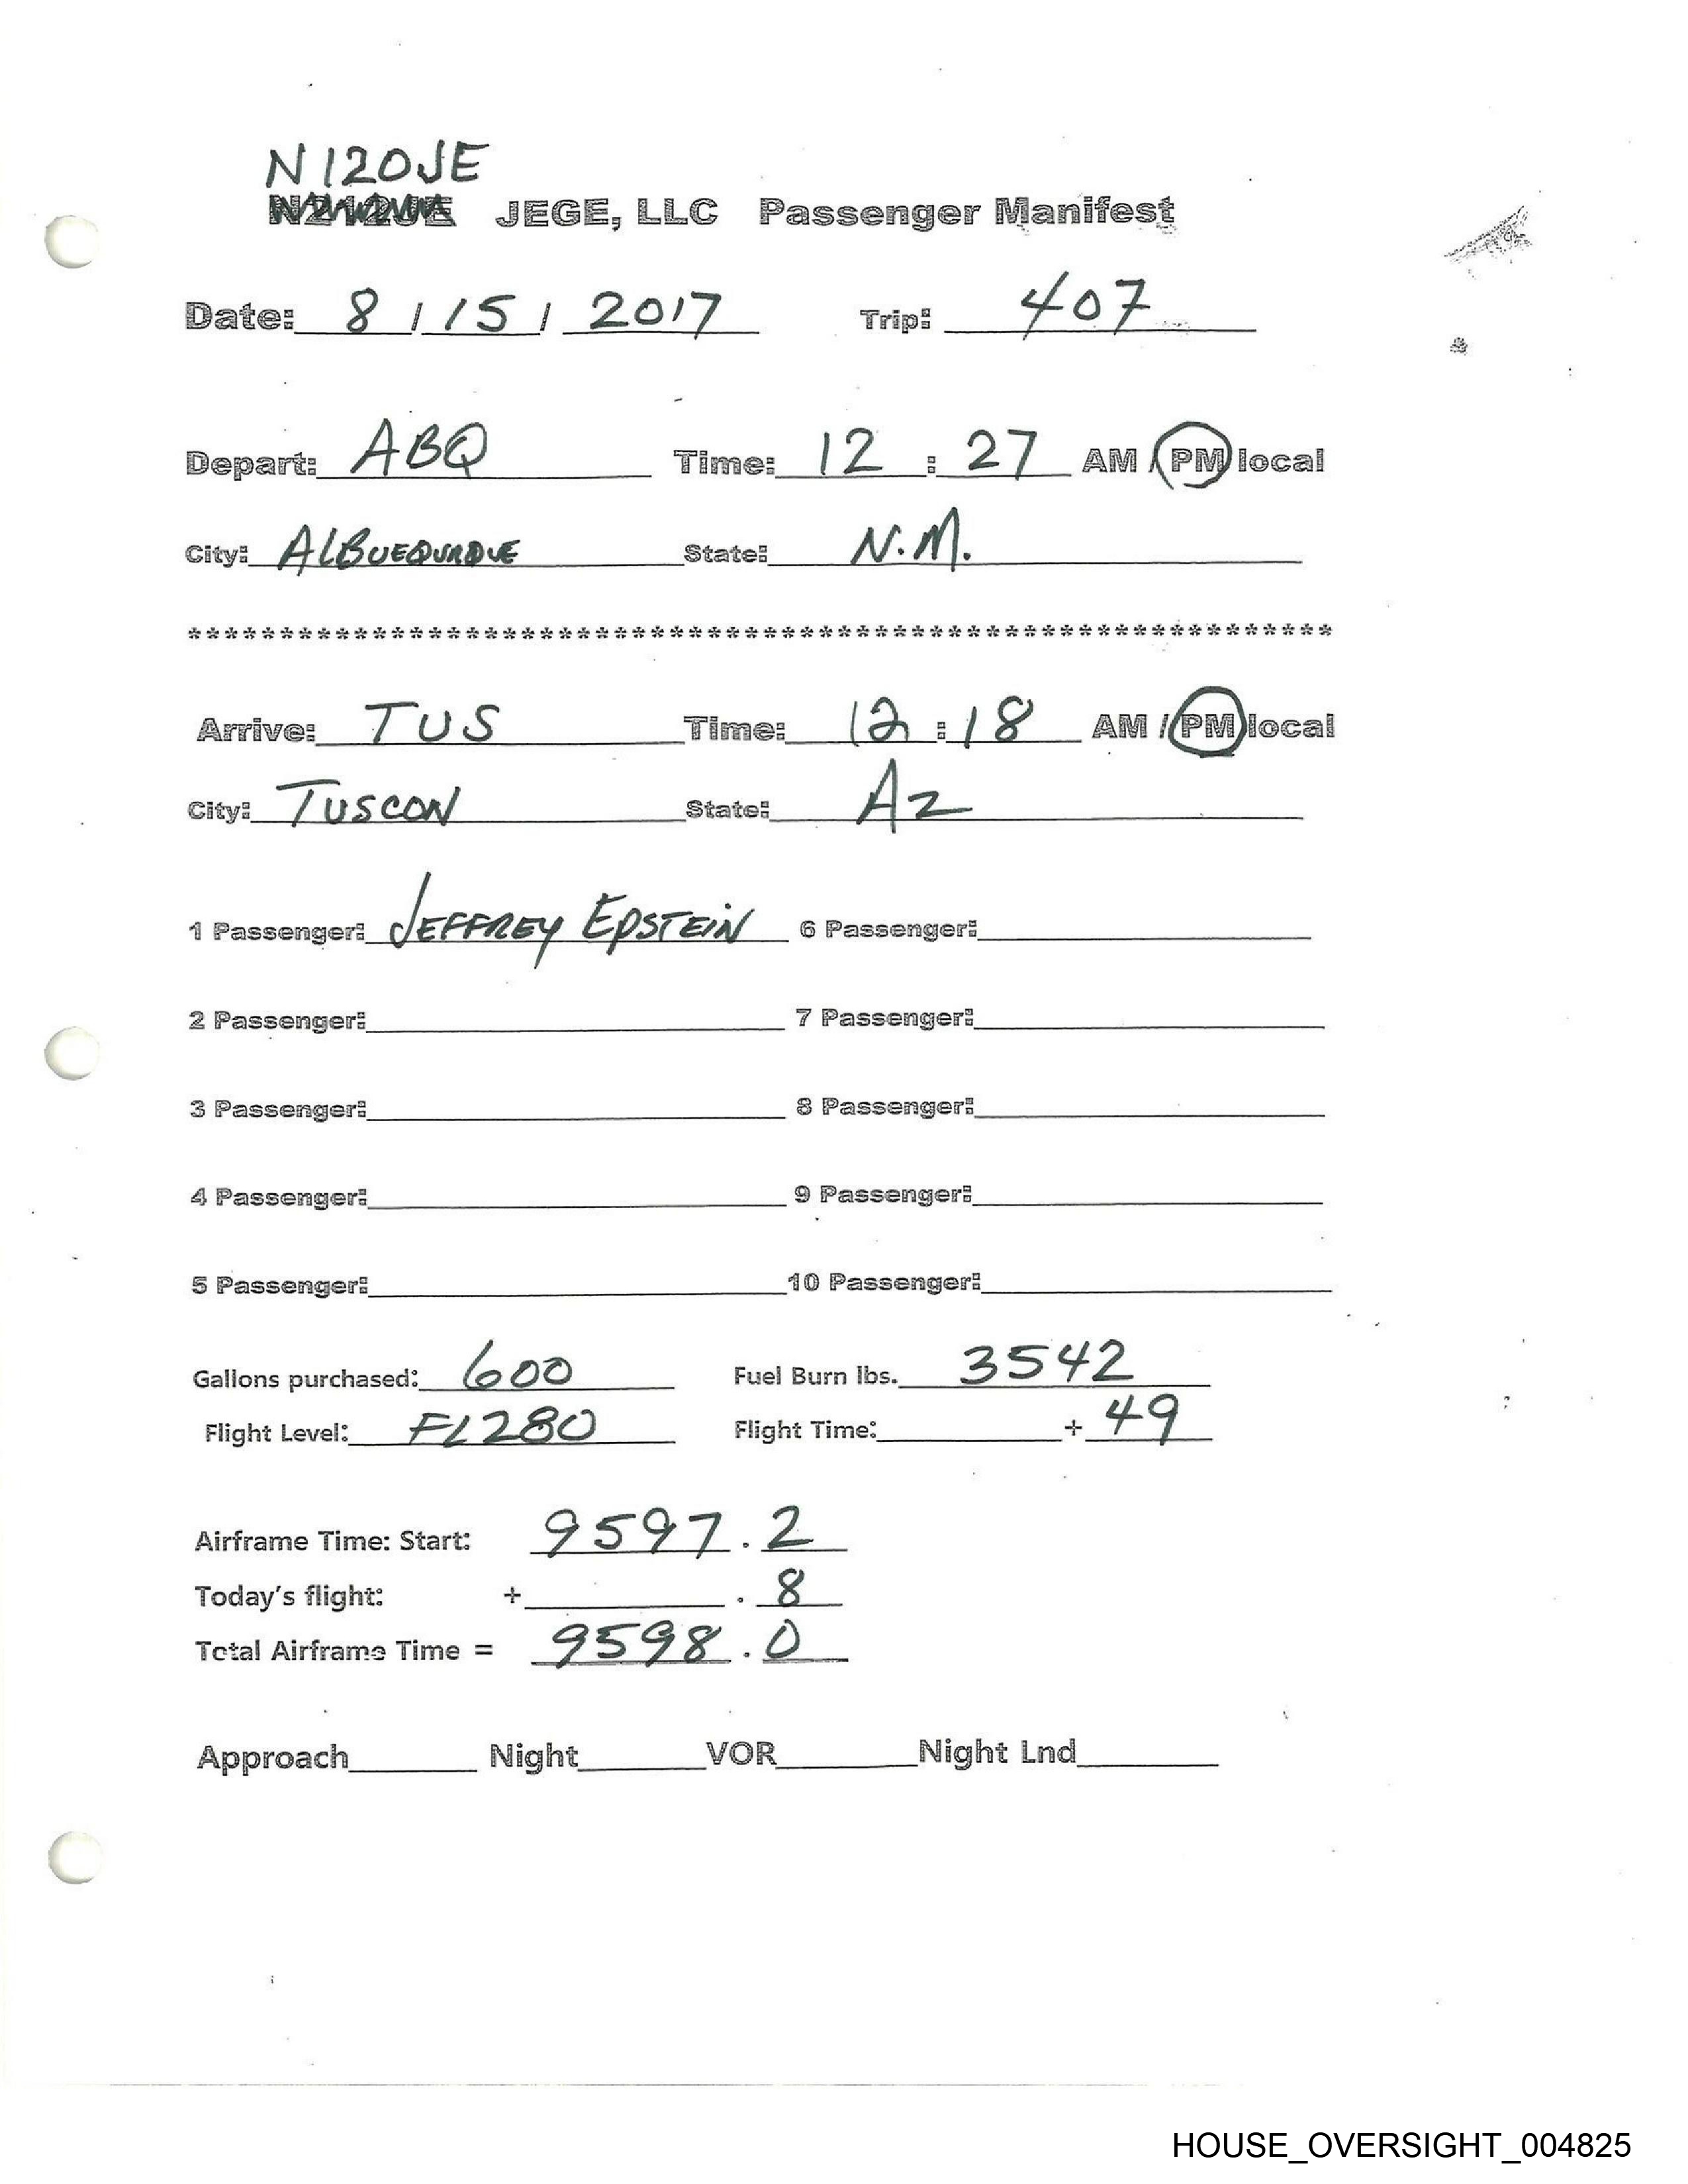 N120JE
JEGE, LLC Passenger Manifest
Date: 8 / 15 / 2017 Trip: 407
Depart: ABQ Time: 12 : 27 AM / PM local
City: ALBUEQURQUE State: N.M.
**************************************************************
Arrive: TUS Time: 12 : 18 AM / PM local
City: TUSCON State: AZ
1 Passenger: JEFFREY EPSTEIN 6 Passenger:
2 Passenger: 7 Passenger:
3 Passenger: 8 Passenger:
4 Passenger: 9 Passenger:
5 Passenger: 10 Passenger:
Gallons purchased: 600 Fuel Burn lbs. 3542
Flight Level: FL280 Flight Time: + 49
Airframe Time: Start: 9597.2
Today's flight: + . 8
Total Airframe Time = 9598.0
Approach Night VOR Night Lnd
HOUSE_OVERSIGHT_004825